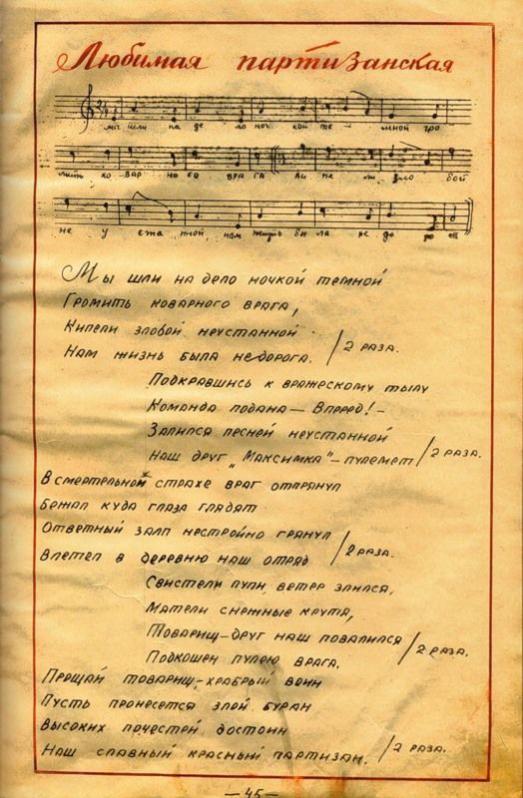 Любимая партизанская
мы шли на де ло ноч кой те — мной гро
мить ко вар но го вра га ки пе ли зло бой
не у ста нной, нам жизнь бы ла не до ро га
Мы шли на дело ночкой темной
Громить коварного врага,
Кипели злобой неустанной
Нам жизнь была недорога. / 2 раза.
Подкравшись к вражескому тылу
Команда подана — Вперед! —
Залился песней неустанной
Наш друг „Максимка" — пулемет / 2 раза.
В смертельном страхе враг отпрянул
Бежал куда глаза глядят
Ответный залп нестройно грянул
Влетел в деревню наш отряд / 2 раза.
Свистели пули, ветер злился,
Матели снежные крутя,
Товарищ-друг наш повалился
Подкошен пулею врага. / 2 раза.
Прощай товарищ, храбрый воин
Пусть пронесется злой буран
Высоких почестей достоин
Наш славный красный партизан. / 2 раза.
— 45 —